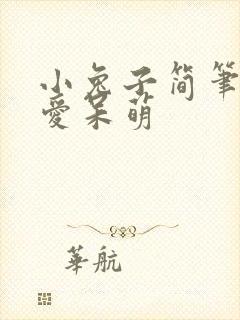 小兔子简筆
愛呆萌
華航